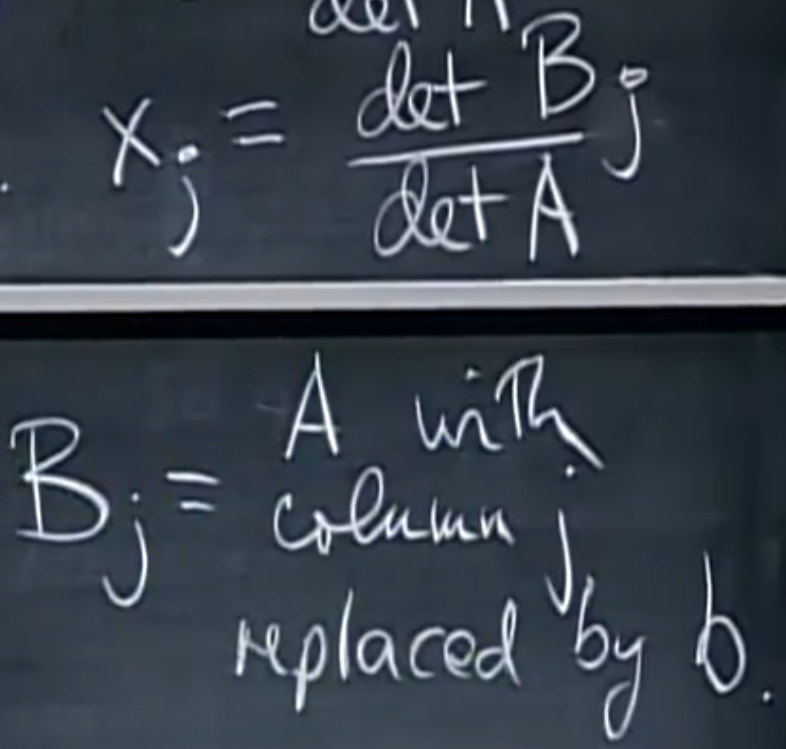 det A
x_j = det B_j / det A
B_j = A with
column j
replaced by b.